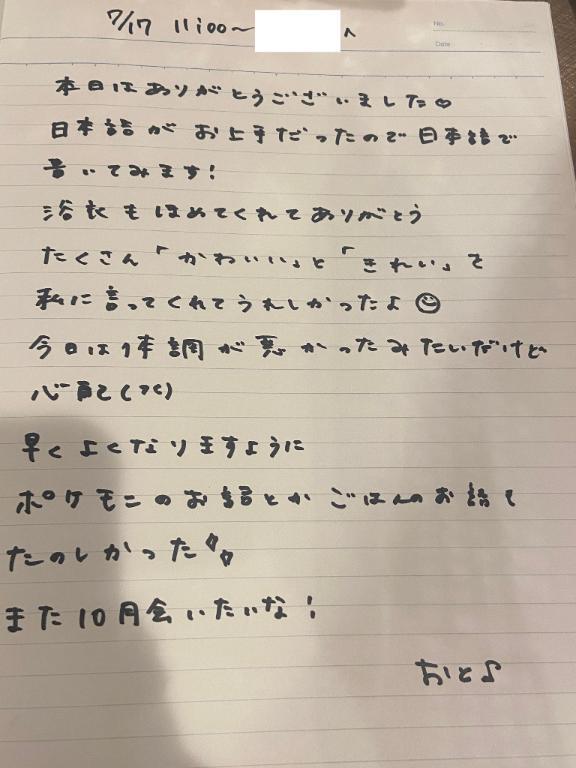 7/17 11:00〜 へ
No.
Date
本日はありがとうございました♡
日本語がお上手だったので日本語で
書いてみます!
浴衣もほめてくれてありがとう
たくさん「かわいい」と「きれい」を
私に言ってくれてうれしかったよ☺
今日は体調が悪かったみたいだけど
心配(>_<)
早くよくなりますように
ポケモンのお話とかごはんのお話し
たのしかった
また10月会いたいな!
おと♪